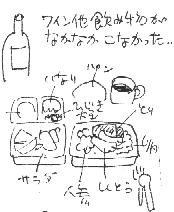 ワイン他飲み物が
なかなかこなかった..
パン
いなり
ひじき
大豆
とり
サラダ
人参
いんとう